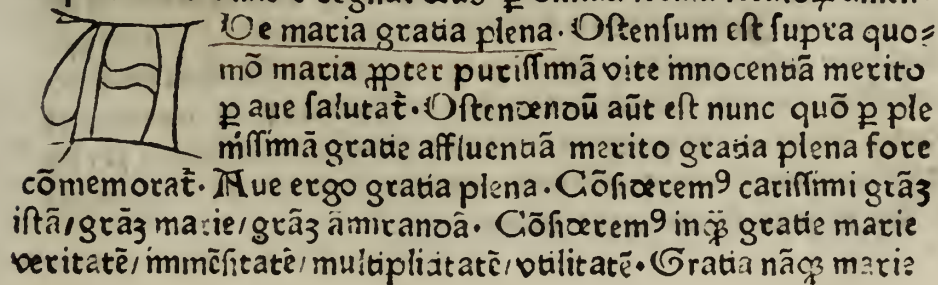 A Ue maria gratia plena. Oſtenſum eſt ſupra quo⸗
mō maria ꝓpter puriſſimā vite innocentiā merito
ꝑ aue ſalutat̄. Oſtendendū aūt eſt nunc quō ꝑ ple
niſſimā gratie affluentiā merito gratia plena fore
cōmemorat̄. Aue ergo gratia plena. Cōſiderem⁹ cariſſimi grāꝫ
iſtā/grāꝫ marie/grāꝫ āmirandā. Cōſiderem⁹ inqͣꝫ gratie marie
veritatē/immēſitatē/multiplicitatē/vtilitatē. Gratia nāqꝫ marie